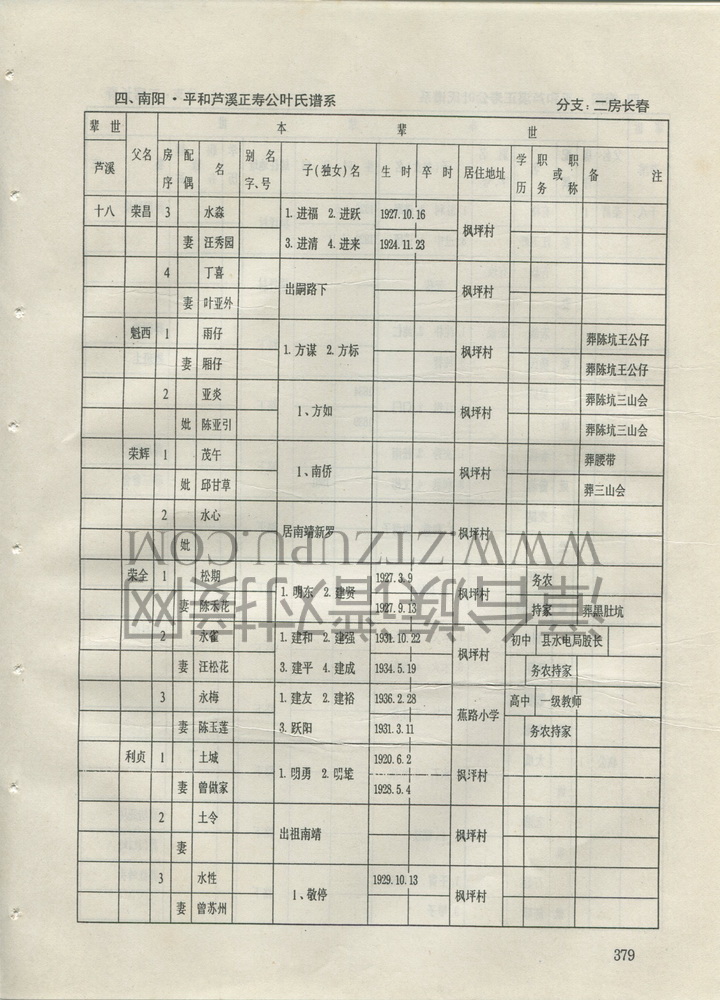 四、南阳·平和芦溪正寿公叶氏谱系 分支：二房长春
辈世 本 辈 世
芦溪 父名 房序 配偶 名 别名字、号 子（独女）名 生时 卒时 居住地址 学历 职务或职称 备注
十八 荣昌 3 水淼 1.进福 2.进跃 1927.10.16 枫坪村
妻 汪秀园 3.进清 4.进来 1924.11.23
4 丁喜 出嗣路下 枫坪村
妻 叶亚外
魁西 1 雨仔 1.方谋 2.方标 枫坪村 葬陈坑王公仔
妻 厢仔 葬陈坑王公仔
2 亚炎 1、方如 枫坪村 葬陈坑三山会
妣 陈亚引 葬陈坑三山会
荣辉 1 茂午 1、南侨 枫坪村 葬腰带
妣 邱甘草 葬三山会
2 水心 居南靖新罗 枫坪村
妣
荣全 1 松期 1.明东 2.建贤 1927.3.9 枫坪村 务农
妻 陈禾花 1927.9.13 持家 葬黑肚坑
2 永雀 1.建和 2.建强 1931.10.22 枫坪村 初中 县水电局股长
妻 汪松花 3.建平 4.建成 1934.5.19 务农持家
3 永梅 1.建友 2.建裕 1936.2.28 蕉路小学 高中 一级教师
妻 陈玉莲 3.跃阳 1931.3.11 务农持家
利贞 1 土城 1.明勇 2.明雄 1920.6.2 枫坪村
妻 曾做家 1928.5.4
2 土令 出祖南靖 枫坪村
妻
3 水性 1、敬停 1929.10.13 枫坪村
妻 曾苏州
379
WWW.ZTZUPU.COM
漳台族谱对接网